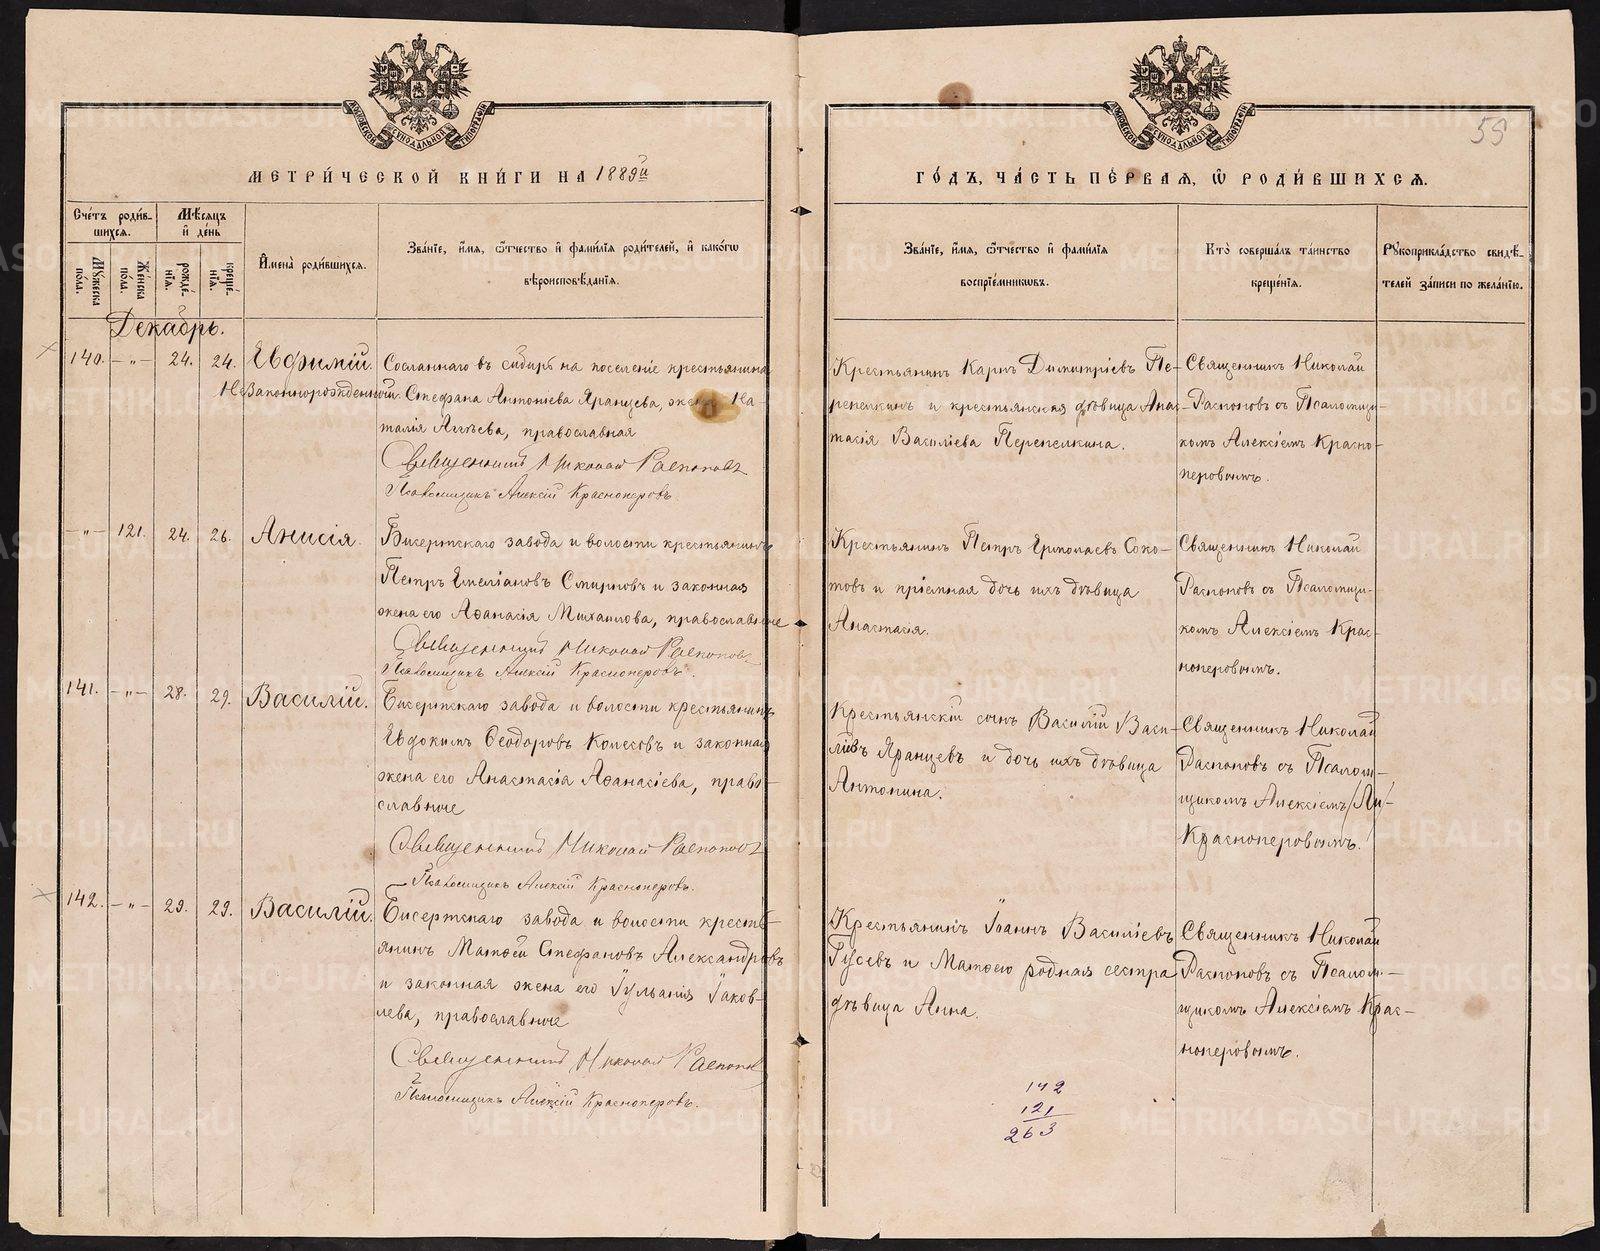 МОСКОВСКОЙ СѴНОДАЛЬНОЙ ТИПОГРАФІИ
МОСКОВСКОЙ СѴНОДАЛЬНОЙ ТИПОГРАФІИ
55
МЕТРИ́ЧЕСКОЙ КНИ́ГИ НА 1889й
ГО́ДЪ, ЧА́СТЬ ПЕ́РВАЯ, Ѽ РОДИ́ВШИХСѦ.
Сче́тъ роди́в-
шихсѧ.
Мѣ́сѧцъ
и҆ де́нь
Мꙋ́жеска пола.
Же́нска пола.
рожде́-нїѧ.
креще́-нїѧ.
И҆мена̀ роди́вшихсѧ.
Зва́нїе, и҆́мѧ, ѻ҆́тчество и҆ фами́лїѧ роди́телей, и҆ како́гѡ
вѣроисповѣ́данїѧ.
Зва́нїе, и҆́мѧ, ѻ҆́тчество и҆ фами́лїѧ
воспрїе́мникѡвъ.
Кто̀ соверша́лъ та́инство
креще́нїѧ.
Рꙋкоприкла́дство свидѣ́-
телей за́писи по жела́нїю.
Декабрь.
140. — „ — 24. 24. Евфимій.
Незаконнорожденный.
Сосланнаго въ сибирь на поселеніе крестьянина
Стефана Антоніева Яранцева, жена На-
талія Аггѣева, православная
Священникъ Николай Распоповъ
Псаломщикъ Алексій Красноперовъ.
Крестьянинъ Карпъ Димитріевъ Пе-
репелкинъ и крестьянская дѣвица Анас-
тасія Василіева Перепелкина.
Священникъ Николай
Распоповъ съ Псаломщи-
комъ Алексіемъ Красно-
перовымъ.
— „ — 121. 24. 26. Анисія.
Бисертскаго завода и волости крестьянинъ
Петръ Емеліановъ Смирновъ и законная
жена его Аѳанасія Михаилова, православные
Священникъ Николай Распоповъ
Псаломщикъ Алексій Красноперовъ.
Крестьянинъ Петръ Ермолаевъ Соко-
товъ и пріемная дочь ихъ дѣвица
Анастасія.
Священникъ Николай
Распоповъ съ Псаломщи-
комъ Алексіемъ Крас-
ноперовымъ.
141. — „ — 28. 29. Василій.
Бисертскаго завода и волости крестьянинъ
Евдокимъ Ѳеодоровъ Колесовъ и законная
жена его Анастасія Аѳанасіева, право-
славные
Священникъ Николай Распоповъ
Псаломщикъ Алексій Красноперовъ.
Крестьянскій сынъ Василій Васи-
ліевъ Яранцевъ и дочь ихъ дѣвица
Антонина.
Священникъ Николай
Распоповъ съ Псалом-
щикомъ Алексіемъ
Красноперовымъ.
142. — „ — 29. 29. Василій.
Бисертскаго завода и волости кресть-
янинъ Матѳей Стефановъ Александровъ
и законная жена его Іуліанія Іаков-
лева, православные
Священникъ Николай Распоповъ
Псаломщикъ Алексій Красноперовъ.
Крестьянинъ Іоаннъ Василіевъ
Гусевъ и Матѳею родная сестра
дѣвица Анна.
Священникъ Николай
Распоповъ съ Псалом-
щикомъ Алексіемъ Крас-
ноперовымъ.
142
121
263
METRIKI.GASO-URAL.RU